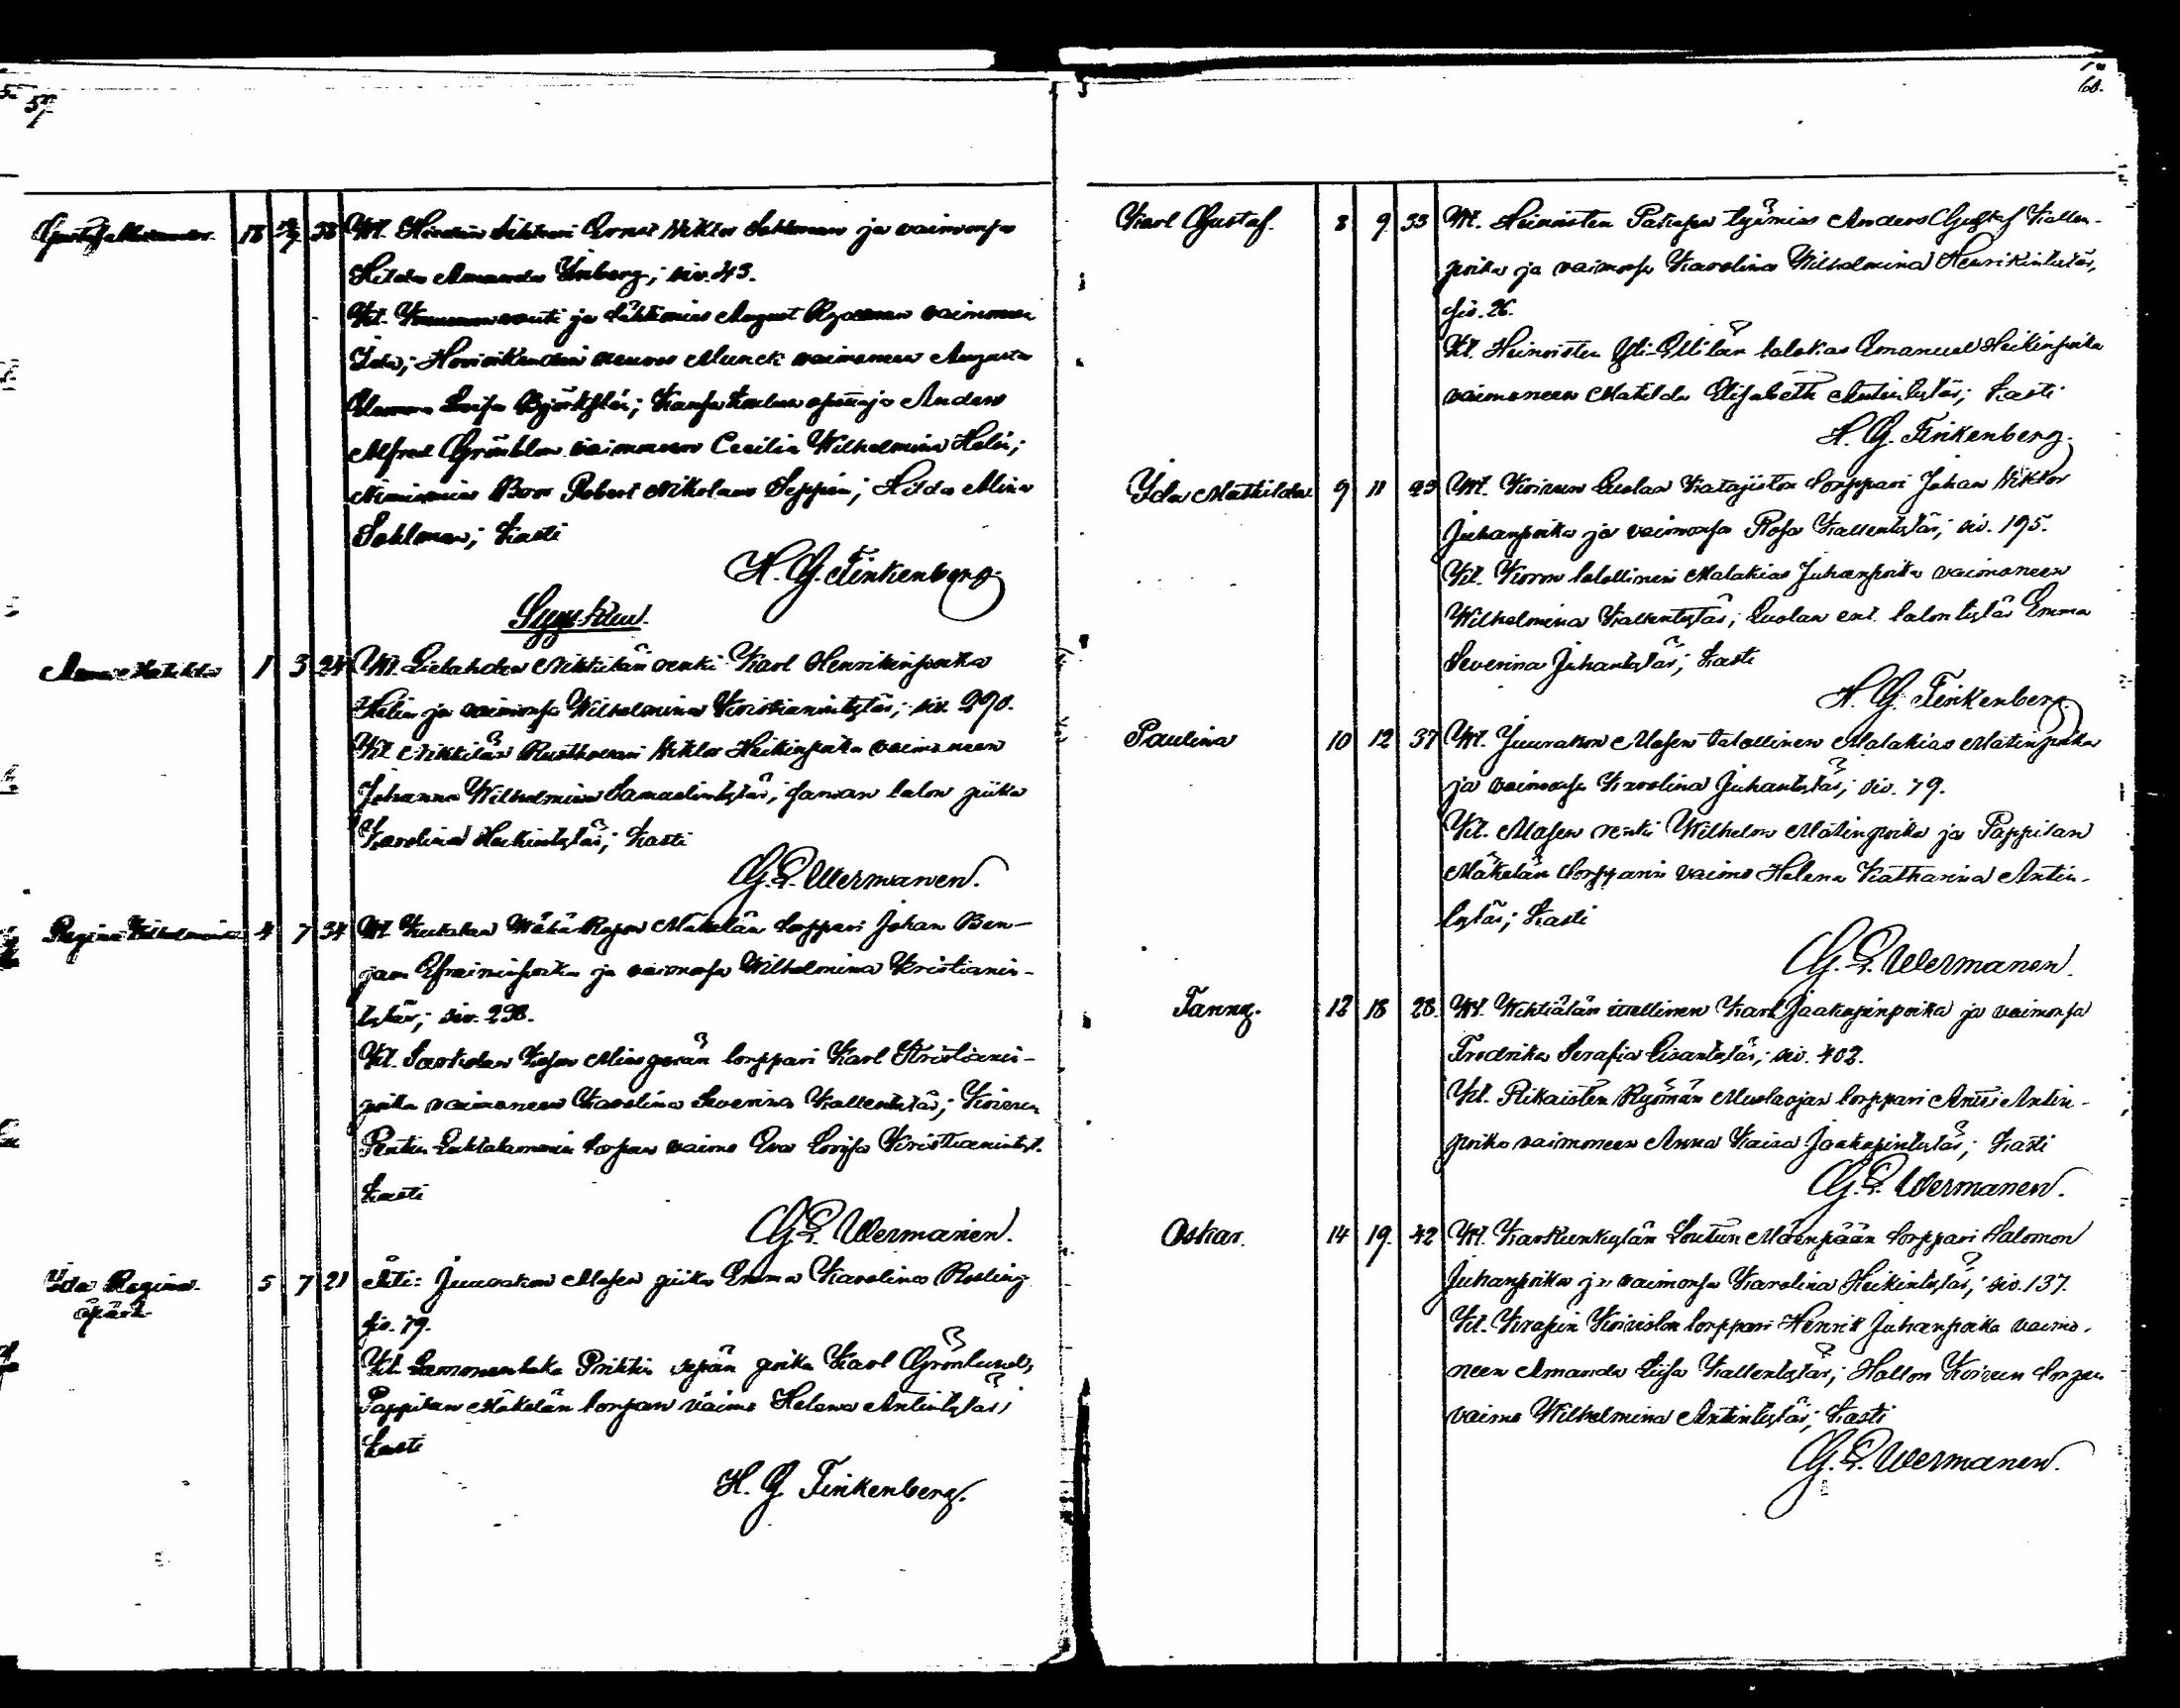 57
Gustaf Alexander. 18 7 38 Wt. Ernst Viktor Sahlman ja vaimonsa
Hilda Amanda siv. 43.
Kt. vouti ja August vaimoneen
Ida; Munck vaimoneen Augusta
Björkstén; Kansakoulun opettaja Anders
Alfred Grönblom vaimoneen Cecilia Wilhelmina Helin;
Nimismies Robert Nikolaus Seppän; Hilda Alina
Sahlman; Kasti
H. G. Finkenberg.
Syyskuu.
Anna Matilda 1 3 24 Wt. Lielahden Nikkilän renki Karl Henrikinpoika
Helin ja vaimonsa Wilhelmina Kristianintytär; siv. 290.
Kt. Nikkilän Rusthollari Viktor Heikinpoika vaimoneen
Johanna Wilhelmina Samuelintytär; saman talon piika
Karolina Heikintytär; kasti
G. L. Wermanen.
Regina Wilhelmina 4 7 34 Wt. Wähä-Rapon Mäkelän torppari Johan Ben-
jam Efraiminpoika ja vaimonsa Wilhelmina Kristianin-
tytär; siv. 298.
Kt. torppari Karl Kristianin-
poika vaimoneen Karolina Severina Kallentytär; Koivun
torpan vaimo Eva Lovisa Kristianintyt.
Kasti
G. L. Wermanen.
Ida Regina. 5 7 21 Äiti: Juurakon Masen piika Emma Karolina Rosling
äpärä. siv. 79.
Kt. Prikkin sepän poika Karl Grönlund,
Pappilan Mäkelän torpan vaimo Helena Antintytär;
Kasti
H. G. Finkenberg.
60.
Karl Gustaf. 8 9 33 Wt. Heinoisten työmies Anders Gustaf Kallen-
poika ja vaimonsa Karolina Wilhelmina Henrikintytär,
siv. 26.
Kt. Heinoisten Yli- talokas Emanuel Heikinpoika
vaimoneen Matilda Elisabeth Antintytär; kasti
H. G. Finkenberg.
Ida Mathilda 9 11 29 Wt. Koivun Luolan Katajiston torppari Johan Viktor
Juhanpoika ja vaimonsa Rosa Kallentytär; siv. 195.
Kt. talollinen Malakias Juhanpoika vaimoneen
Wilhelmina Kallentytär; Luolan ent. talon tytär Emma
Severina Juhantytär; kasti
H. G. Finkenberg.
Paulina 10 12 37 Wt. Juurakon Masen talollinen Malakias Matinpoika
ja vaimonsa Karolina Juhantytär; siv. 79.
Kt. Masen renki Wilhelm Matinpoika ja Pappilan
Mäkelän torpparin vaimo Helena Katharina Antin-
tytär; kasti
G. L. Wermanen.
Fanny. 12 18 28. Wt. itsellinen Karl Jaakopinpoika ja vaimonsa
Fredrika Serafia siv. 402.
Kt. Rikaisten Ryömän torppari Antti Antin-
poika vaimoneen Anna Kaisa Jaakopintytär; kasti
G. L. Wermanen.
Oskar. 14 19. 42 Wt. Karkunkylän Loutun Mäenpään torppari Salomon
Juhanpoika ja vaimonsa Karolina Heikintytär; siv. 137.
Kt. Koiviston torppari Henrik Juhanpoika vaimo-
neen Amanda Liisa Kallentytär; Koivun torpan
vaimo Wilhelmina Antintytär; kasti
G. L. Wermanen.